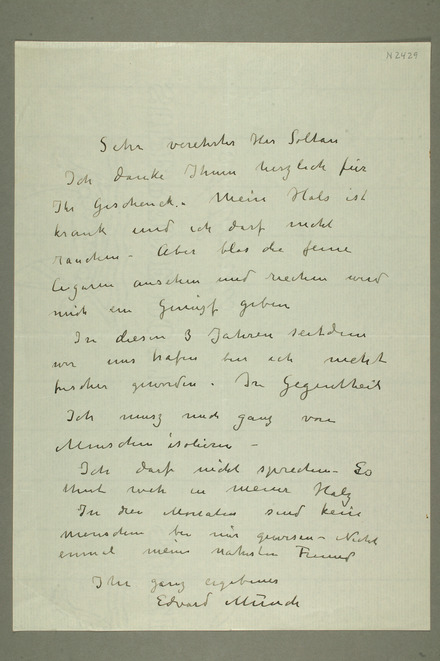 N 2429
Sehr verehrter Herr Soltau
Ich danke Ihnen herzlich für
Ihr Geschenck. Mein Hals ist
krank und ich darf nicht
rauchen – Aber blos die feine
Cigaren ansehen und riechen wird
mich ein Genüss geben
In diesen 3 Jahren seitdem
wir uns trafen bin ich nicht
frischer geworden. In Gegentheil
Ich musz mich ganz von
Menschen isolieren –
Ich darf nicht sprechen – Es
thut weh in meiner Halz
In drei Monaten sind keine
menschen bei mir gewesen – Nicht
einmal meine nahesten Freund
Ihr ganz ergebener
Edvard Münch